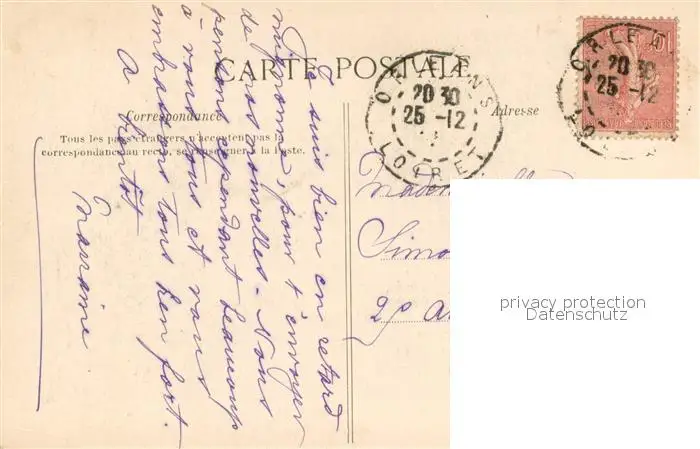 CARTE POSTALE
Correspondance
Adresse
Tous les pays étrangers n'acceptent pas la
correspondance au recto, se renseigner à la Poste.
Je suis bien en retard
mignonne, pour t'envoyer
de nos nouvelles. Nous
pensons cependant beaucoup
à vous tous et vous
embrassons tous bien fort.
A bientôt
Marraine
ORLEANS
20 30
25 -12
LOIRET
ORLEA
20 30
25 -12
10
Simo
2P A
privacy protection
Datenschutz